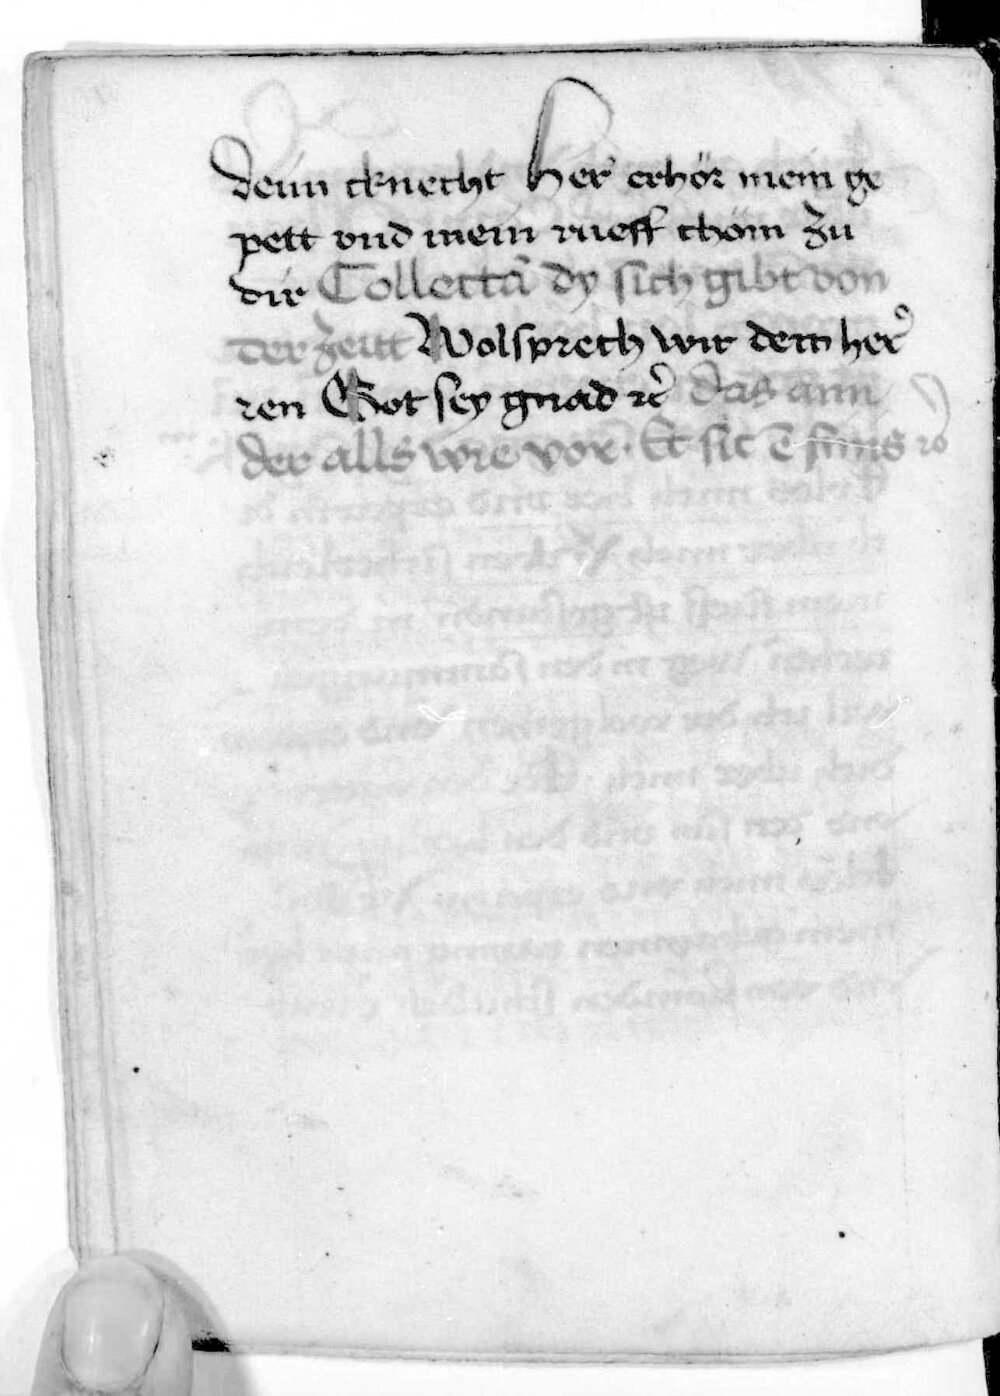 dein cknecht Her erhör mein ge
pett vnd mein rueff chöm zu
dir Collecta dy sich gibt von
der zeitt Wolsprech wir dem her
ren Got sey gnad rc das ann
der alls wie vor · Et sic e finis